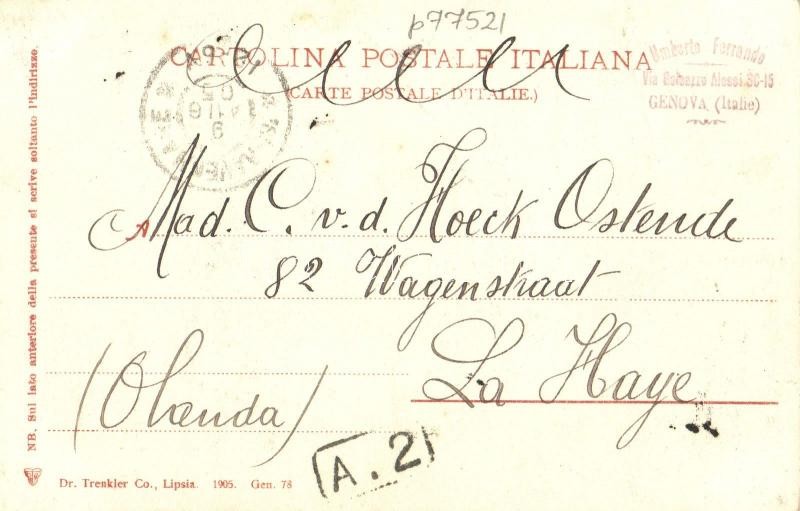 p77521
CARTOLINA POSTALE ITALIANA
(CARTE POSTALE D'ITALIE.)
Umberto Ferrando
Via Galeazzo Alessi 3C-15
GENOVA (Italie)
A Mad. C. v. d. Hoeck Ostende
82 Wagenstraat
La Haye
(Olanda)
A. 2
NB. Sul lato anteriore della presente si scrive soltanto l'indirizzo.
Dr. Trenkler Co., Lipsia. 1905. Gen. 78